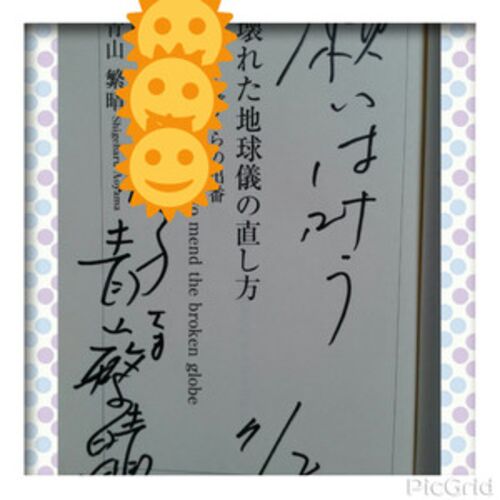 願いは叶う
7/2
壊れた地球儀の直し方
to mend the broken globe
らの出番
青山 繁晴
Shigeharu Aoyama
さま
青山繁晴
PicGrid